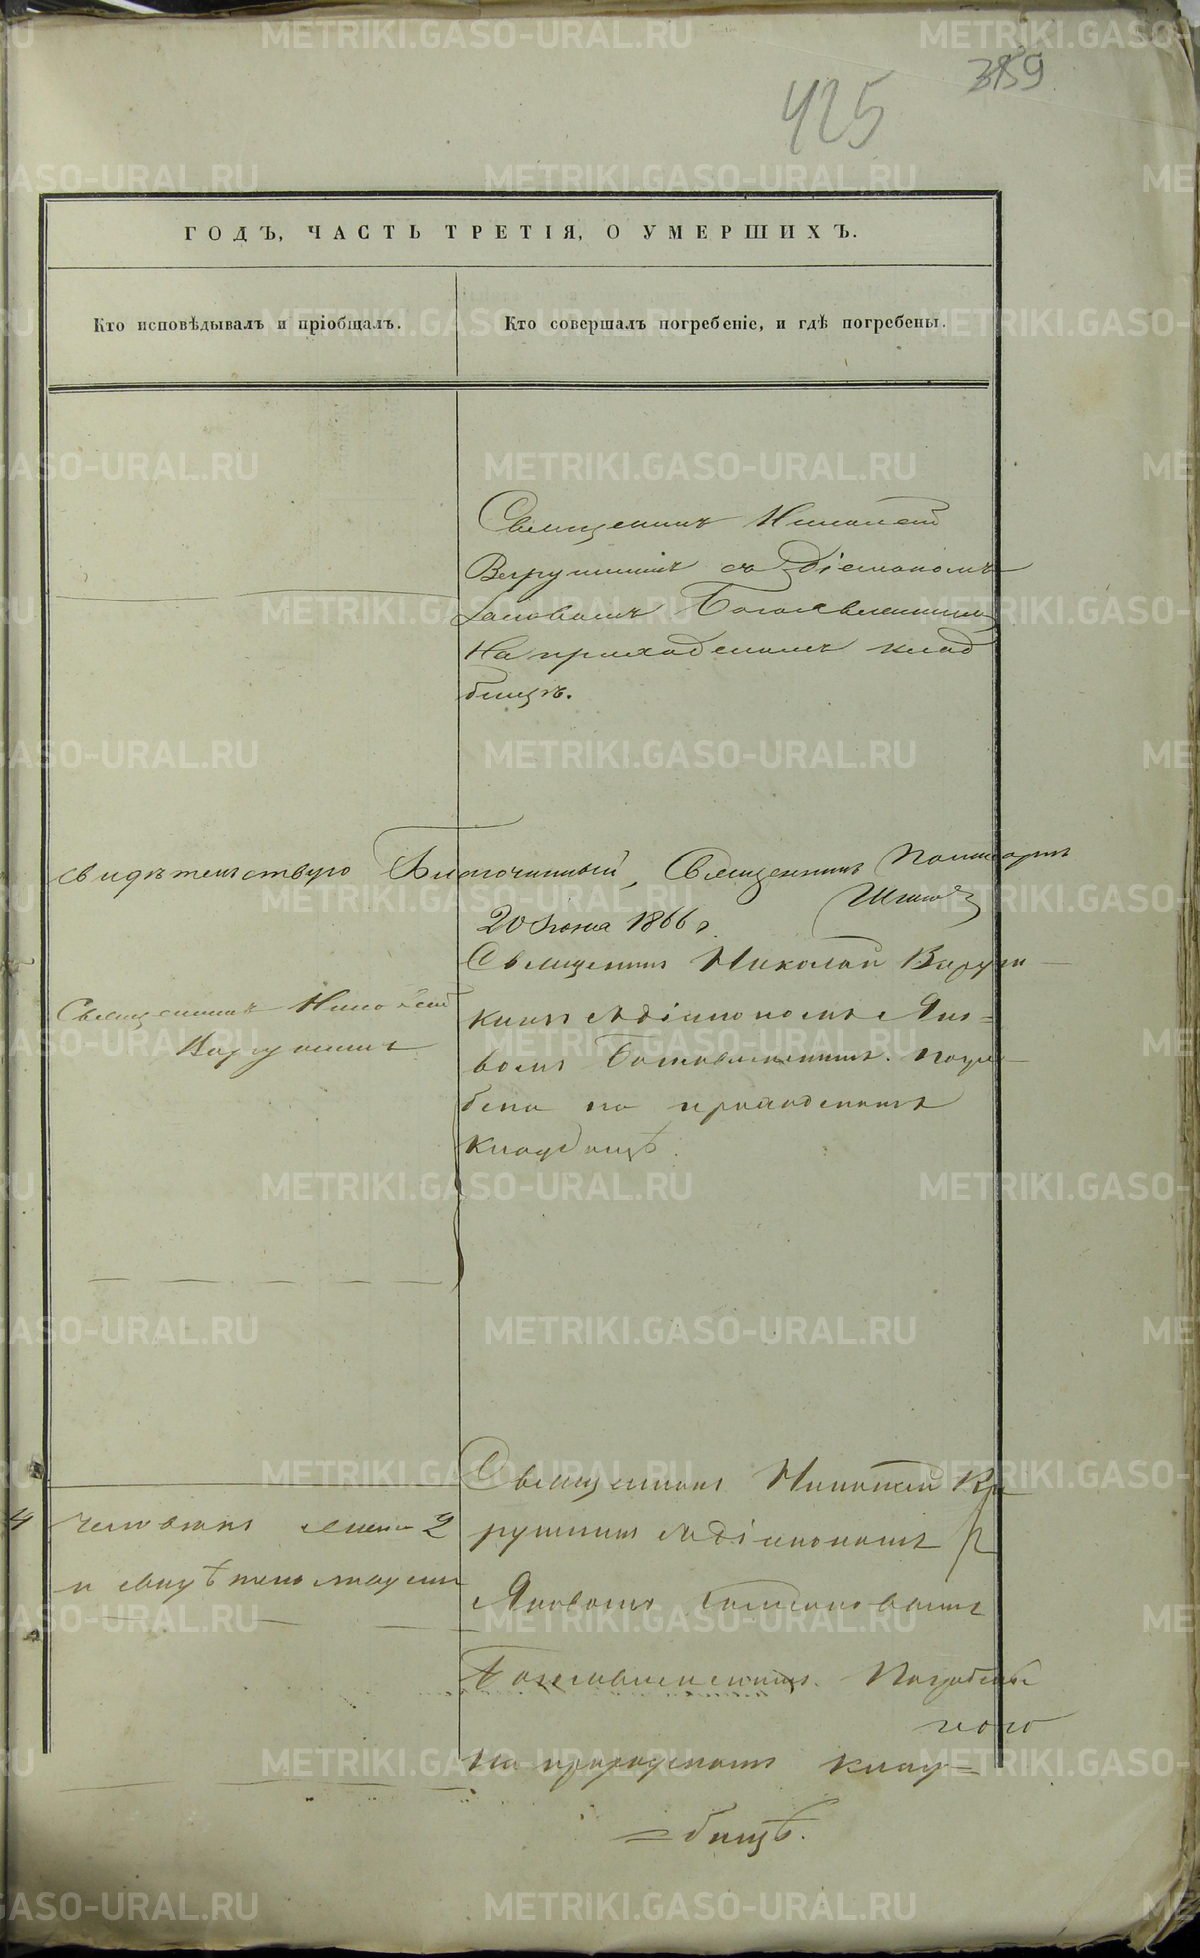 425
359
ГОДЪ, ЧАСТЬ ТРЕТІЯ, О УМЕРШИХЪ.
Кто исповѣдывалъ и пріобщалъ.
Кто совершалъ погребеніе, и гдѣ погребены.
Священникъ Николай
Варушкинъ съ діакономъ
Іаковомъ Богоявленскимъ
На приходскомъ клад
бищѣ.
свидѣтельствую Благочинный, Священникъ
20 Іюня 1866 г.
Священникъ Николай
Варушкинъ
Священникъ Николай Варуш
кинъ съ діакономъ Яко=
вомъ Богоявленскимъ. погре
бенъ на приходскомъ
кладбищѣ.
4 человѣка
и свидѣтельствуемъ
Священникъ Николай Ва
рушкинъ съ діакономъ
Яковомъ
Богоявленскимъ. Погребены
на приходскомъ клад=
=бищѣ.
METRIKI.GASO-URAL.RU